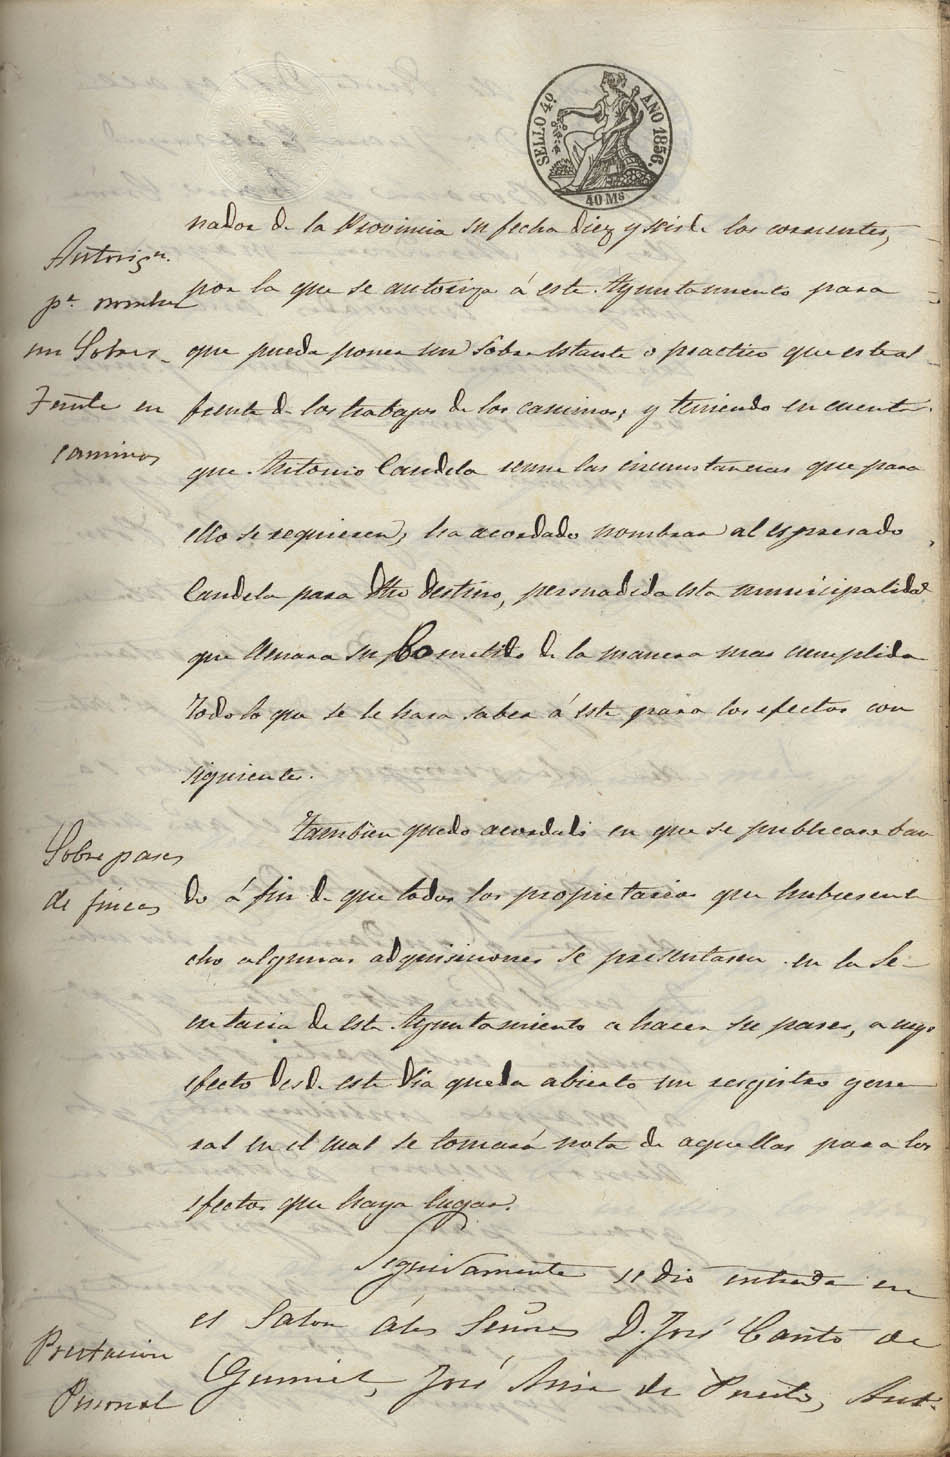 SELLO 4º. AÑO 1856.
40 Ms
nador de la Provincia su fecha diez y seis de los corrientes,
Autorizn.
pª nombrar
un Sobres-
tente en
caminos
por la que se autoriza á este Ayuntamiento para
que pueda poner un Sobrestante o practico que este al
frente de los trabajos de los caminos; y teniendo en cuenta
que Antonio Candela reune las circunstancias que para
ello se requieren, ha acordado nombrar al espresado
Candela para dho destino, persuadida esta municipalidad
que llenara su Cometido de la manera mas cumplida
Todo lo que se le hara saber á este para los efectos con
siguientes.
Sobre pases
de fincas
Tambien quedo acordado en que se publicase ban
do á fin de que todos los propietarios que hubiesen he
cho algunas adquisiciones se presentasen en la Se-
cretaria de este Ayuntamiento a hacer su pases, a cuyo
efecto desde este dia queda abierto un resgistro gene
ral en el cual se tomará nota de aquellas para los
efectos que haya lugar.
Prestacion
Personal
Seguidamente se dió entrada en
el Salon á los Señores D. José Cantó de
Gumiel, José de Puerto, Ant.